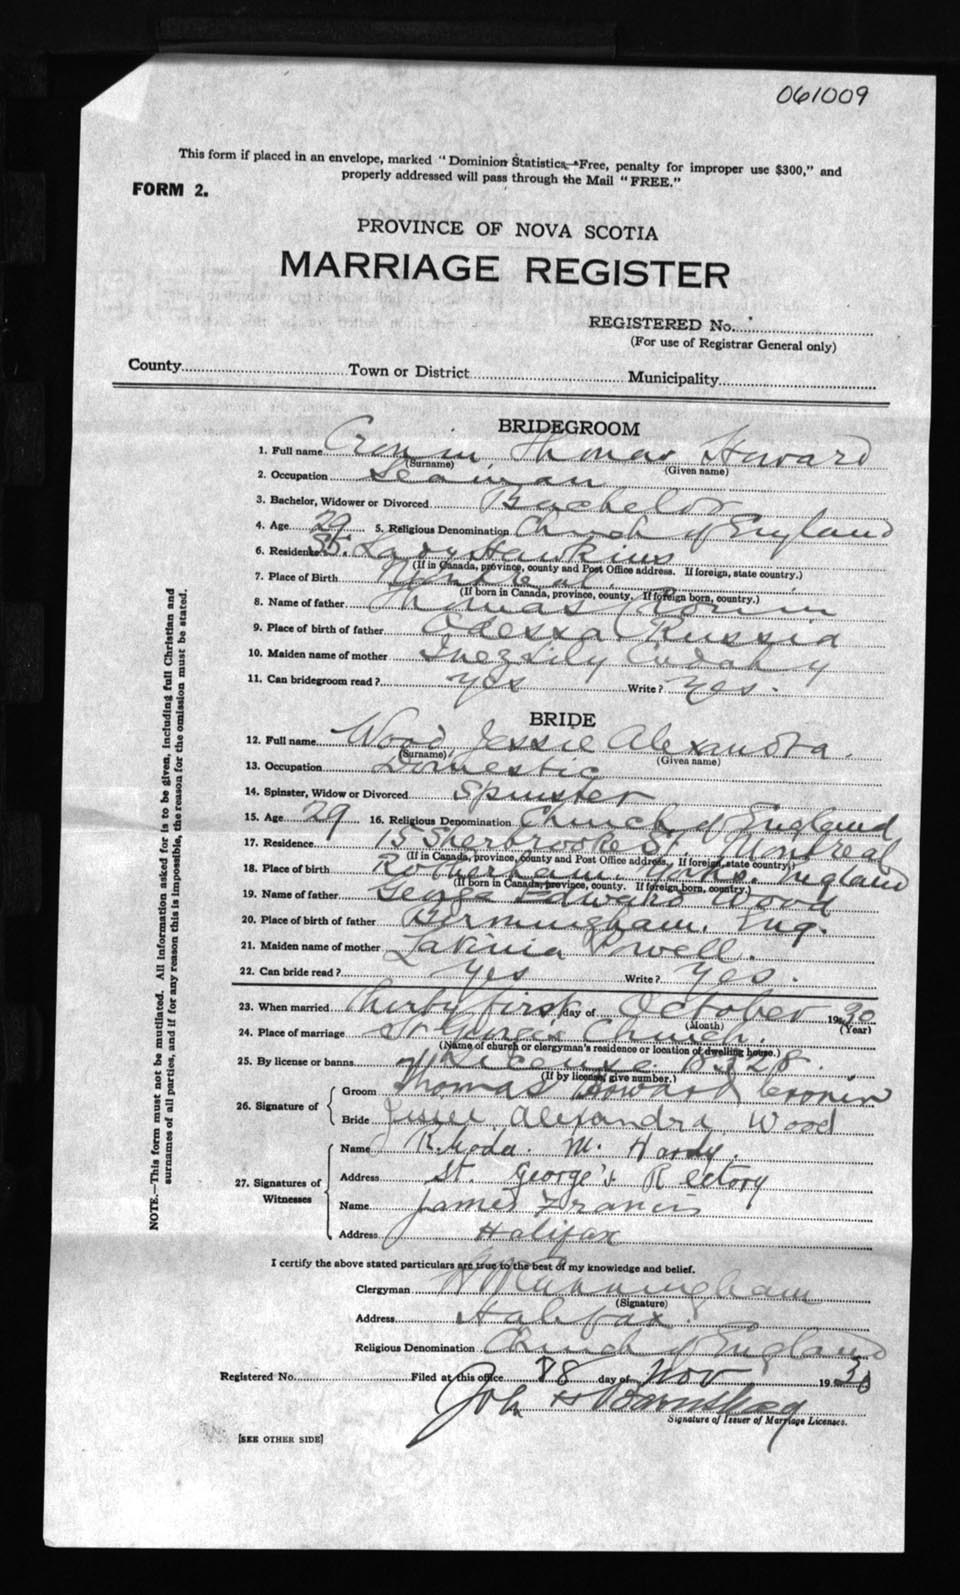 061009
This form if placed in an envelope, marked "Dominion Statistics—Free, penalty for improper use $300," and
properly addressed will pass through the Mail "FREE."
FORM 2.
PROVINCE OF NOVA SCOTIA
MARRIAGE REGISTER
REGISTERED No.
(For use of Registrar General only)
County Town or District Municipality
BRIDEGROOM
1. Full name Cronin, Thomas Howard
(Surname) (Given name)
2. Occupation Seaman
3. Bachelor, Widower or Divorced Bachelor
4. Age 29 5. Religious Denomination Church of England
6. Residence Lady Hawkins
(If in Canada, province, county and Post Office address. If foreign, state country.)
7. Place of Birth Montreal
(If born in Canada, province, county. If foreign born, country.)
8. Name of father Thomas Cronin
9. Place of birth of father Odessa Russia
10. Maiden name of mother Inez Lily Cudahy
11. Can bridegroom read? yes Write? yes.
BRIDE
12. Full name Wood, Jessie Alexandra
(Surname) (Given name)
13. Occupation Domestic
14. Spinster, Widow or Divorced Spinster
15. Age 29 16. Religious Denomination Church of England
17. Residence 15 Sherbrooke St. Montreal
(If in Canada, province, county and Post Office address. If foreign, state country.)
18. Place of birth Rotherham. Yorks. England
(If born in Canada, province, county. If foreign born, country.)
19. Name of father George Edward Wood
20. Place of birth of father Birmingham. Eng.
21. Maiden name of mother Lavinia Powell.
22. Can bride read? yes Write? yes.
23. When married thirty first day of October 1930
(Month) (Year)
24. Place of marriage St George's Church.
(Name of church or clergyman's residence or location of dwelling house.)
25. By license or banns License
(If by license, give number.)
26. Signature of Groom Thomas Howard Cronin
Bride Jessie Alexandra Wood
27. Signatures of Witnesses Name Rhoda. M. Hardy.
Address St. George's Rectory
Name James Francis
Address Halifax
I certify the above stated particulars are true to the best of my knowledge and belief.
Clergyman Cunningham
(Signature)
Address Halifax
Religious Denomination Church of England
Registered No. Filed at this office day of Nov 1930
Signature of Issuer of Marriage Licenses.
[SEE OTHER SIDE]
NOTE.—This form must not be mutilated. All information asked for is to be given, including full Christian and
surnames of all parties, and if for any reason this is impossible, the reason for the omission must be stated.